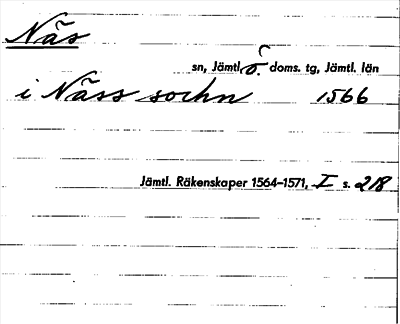 Näs
sn, Jämtl. ö. doms. tg, Jämtl. län
i Näss sochn 1566
Jämtl. Räkenskaper 1564–1571, I s. 218